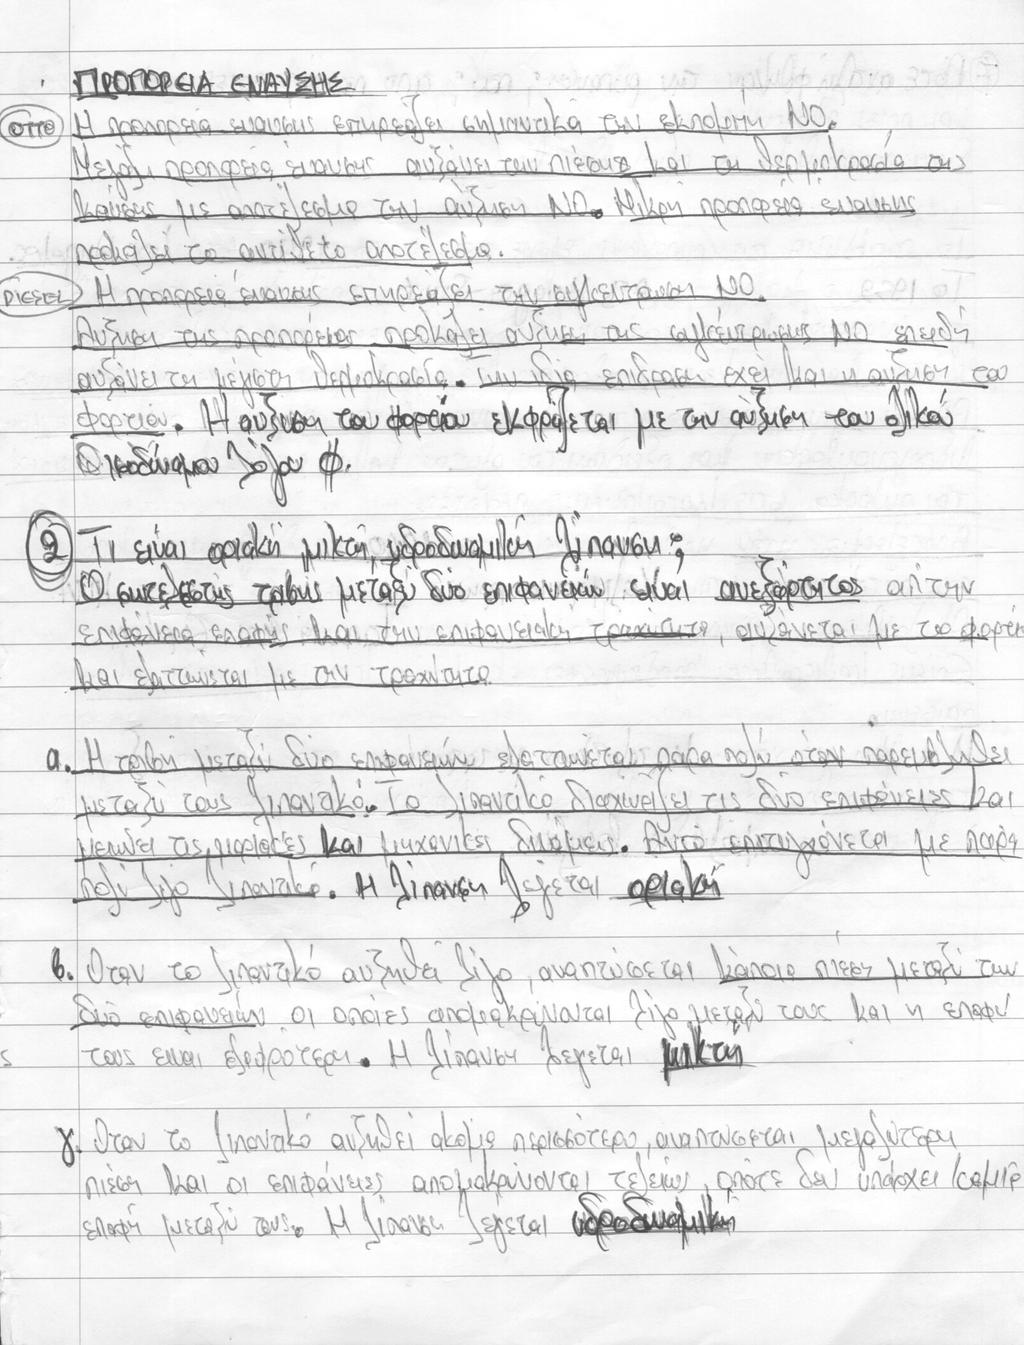 ΠΡΟΠΟΡΕΙΑ ΕΝΑΥΣΗΣ
OTTO Η προπορεία έναυσης επηρεάζει σημαντικά την εκπομπή NO.
Μεγάλη προπορεία έναυσης αυξάνει την πίεση και τη θερμοκρασία της
καύσης με αποτέλεσμα την αύξηση NO. Μικρή προπορεία έναυσης
προκαλεί το αντίθετο αποτέλεσμα.
DIESEL Η προπορεία έναυσης επηρεάζει την συγκέντρωση NO.
Αύξηση της προπορείας προκαλεί αύξηση της συγκέντρωσης NO επειδή
αυξάνει τη μέγιστη θερμοκρασία. Την ίδια επίδραση έχει και η αύξηση του
φορτίου. Η αύξηση του φορτίου εκφράζεται με την αύξηση του ολικού
Ισοδύναμου λόγου φ.
9 Τι είναι οριακή, μικτή, υδροδυναμική λίπανση;
Ο συντελεστής τριβής μεταξύ δύο επιφανειών είναι ανεξάρτητος απ' την
επιφάνεια επαφής και την επιφανειακή τραχύτητα, αυξάνεται με το φορτίο
και ελαττώνεται με την τραχύτητα
α. Η τριβή μεταξύ δύο επιφανειών ελαττώνεται πάρα πολύ όταν παρεμβληθεί
μεταξύ τους λιπαντικό. Το λιπαντικό διαχωρίζει τις δύο επιφάνειες και
μειώνει τις μοριακές και μηχανικές δυνάμεις. Αυτό επιτυγχάνεται με πάρα
πολύ λίγο λιπαντικό. Η λίπανση λέγεται οριακή
β. Όταν το λιπαντικό αυξηθεί λίγο, αναπτύσσεται κάποια πίεση μεταξύ των
δύο επιφανειών οι οποίες απομακρύνονται λίγο μεταξύ τους και η επαφή
τους είναι ελαφρότερη. Η λίπανση λέγεται μικτή
γ. Όταν το λιπαντικό αυξηθεί ακόμα περισσότερο, αναπτύσσεται μεγαλύτερη
πίεση και οι επιφάνειες απομακρύνονται τελείως, οπότε δεν υπάρχει καμία
επαφή μεταξύ τους. Η λίπανση λέγεται υδροδυναμική